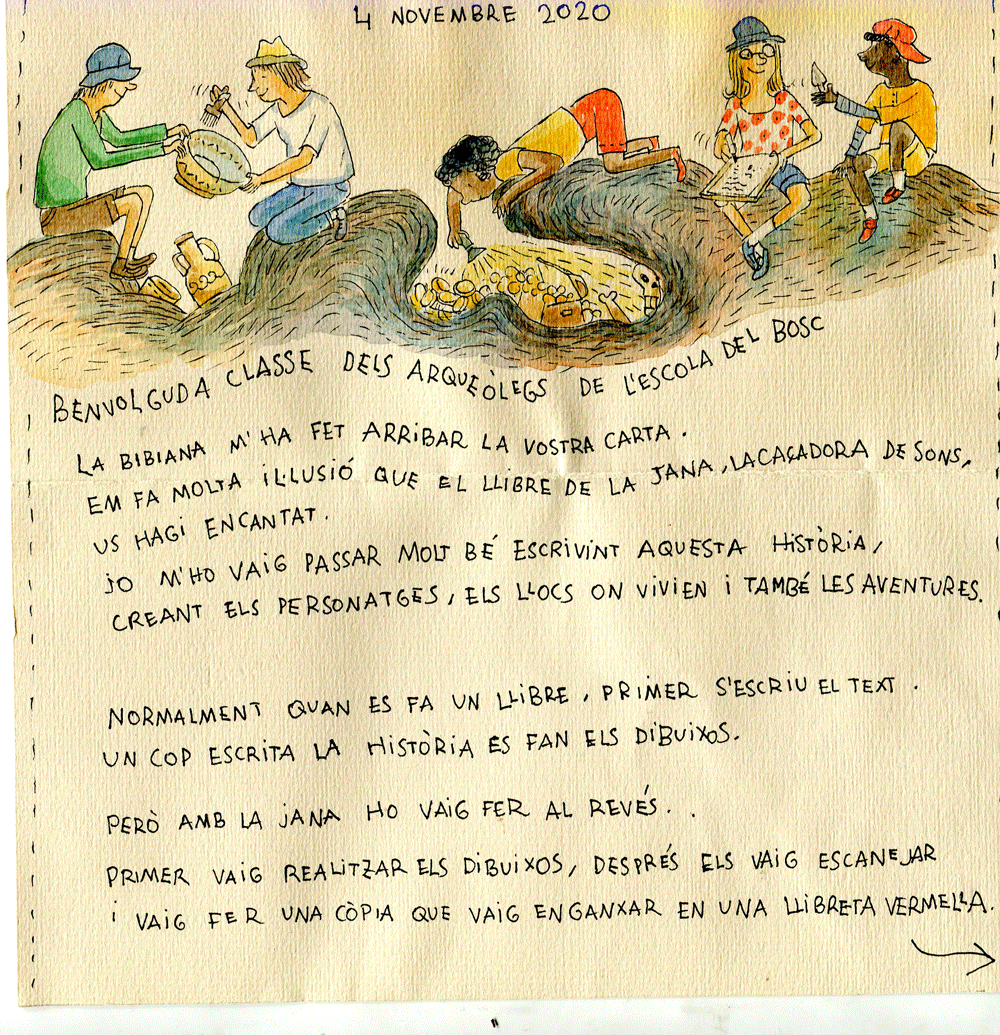 4 NOVEMBRE 2020
BENVOLGUDA CLASSE DELS ARQUEÒLEGS DE L'ESCOLA DEL BOSC
LA BIBIANA M'HA FET ARRIBAR LA VOSTRA CARTA.
EM FA MOLTA IL·LUSIÓ QUE EL LLIBRE DE LA JANA, LA CAÇADORA DE SONS,
US HAGI ENCANTAT.
JO M'HO VAIG PASSAR MOLT BÉ ESCRIVINT AQUESTA HISTÒRIA,
CREANT ELS PERSONATGES, ELS LLOCS ON VIVIEN I TAMBÉ LES AVENTURES.
NORMALMENT QUAN ES FA UN LLIBRE, PRIMER S'ESCRIU EL TEXT.
UN COP ESCRITA LA HISTÒRIA ES FAN ELS DIBUIXOS.
PERÒ AMB LA JANA HO VAIG FER AL REVÉS..
PRIMER VAIG REALITZAR ELS DIBUIXOS, DESPRÉS ELS VAIG ESCANEJAR
I VAIG FER UNA CÒPIA QUE VAIG ENGANXAR EN UNA LLIBRETA VERMELLA.